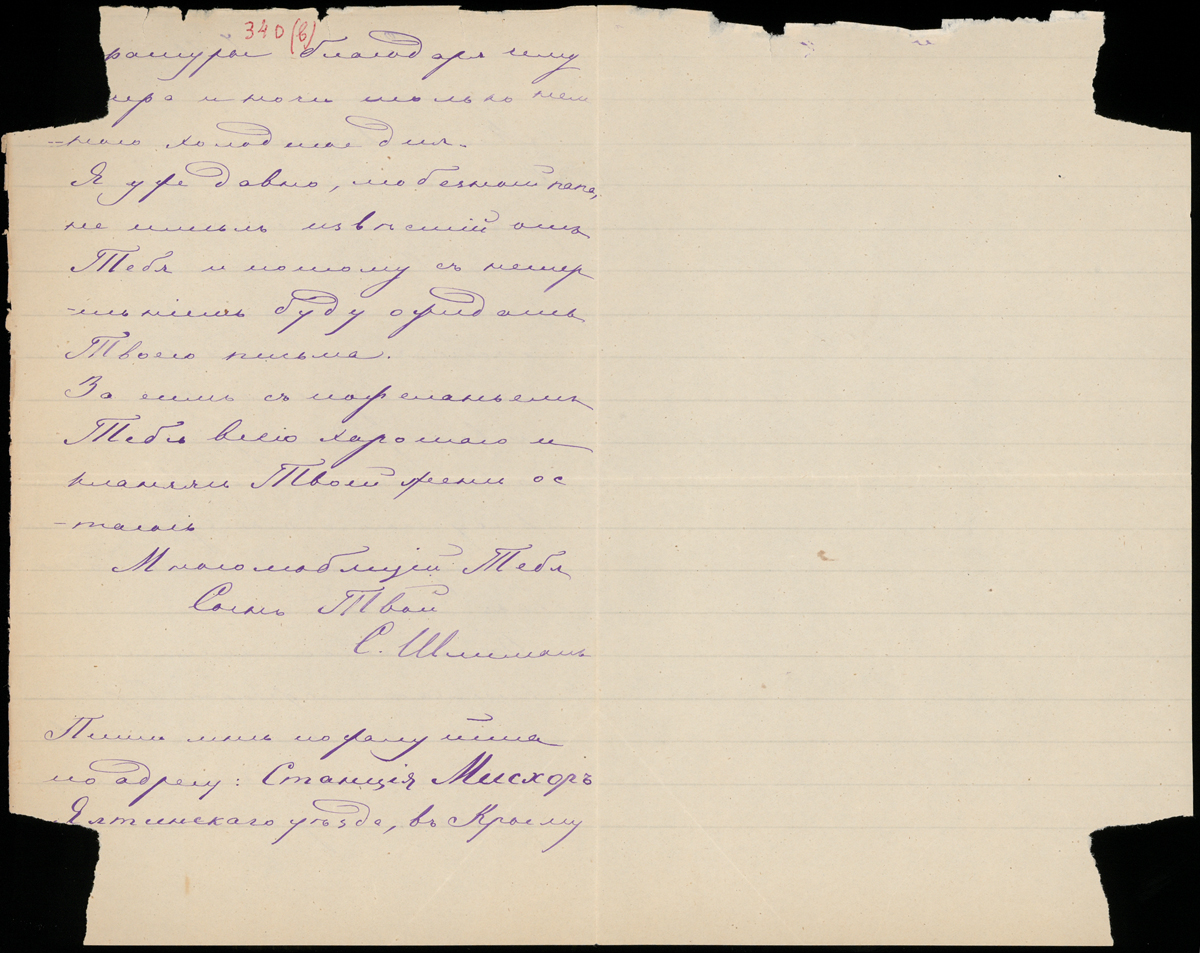 340 (b)
ратуры благодаря чему
чера и ночи только нем
-ного холоднее дня.
Я уже давно, любезный папа,
не имѣлъ извѣстій отъ
Тебя и потому съ нетер
-пѣніемъ буду ожидать
Твоего письма.
За симъ съ пожеланьемъ
Тебѣ всего харошаго и
кланяясь Твоей жены ос
-таюсь
Многолюбящій Тебя
Сынъ Твой
С. Шлиманъ
Пиши мнѣ пожалуйста
по адресу: Станція Мисхоръ
Ялтинскаго уѣзда, въ Крыму